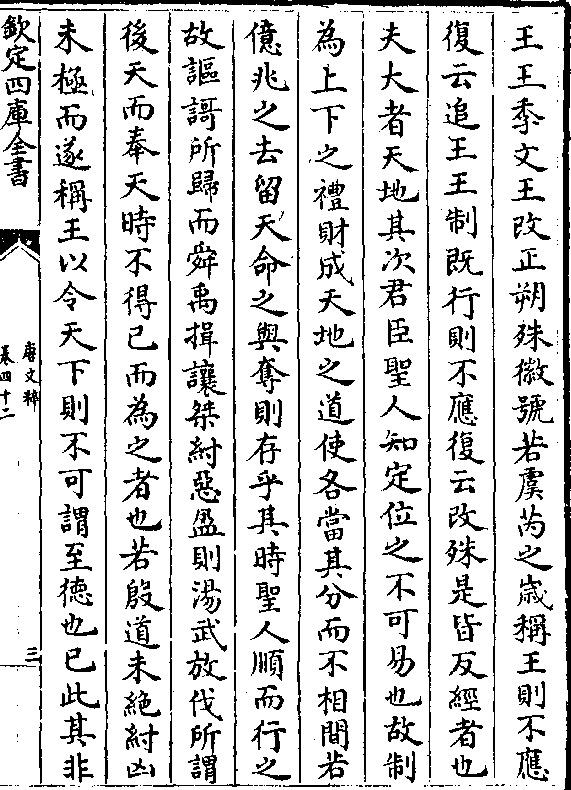 王王季文王改正朔殊徽號若虞芮之歲稱王則不應
復云追王王制既行則不應復云改殊是皆反經者也
夫大者天地其次君臣聖人知定位之不可易也故制
為上下之禮財成天地之道使各當其分而不相間若
億兆之去留天命之與奪則存乎其時聖人順而行之
故謳謌所歸而舜禹揖讓桀紂惡盈則湯武放伐所謂
後天而奉天時不得已而為之者也若殷道未絶紂凶
未極而遂稱王以令天下則不可謂至徳也已此其非
欽定四庫全書
唐文粹
卷四十二
三